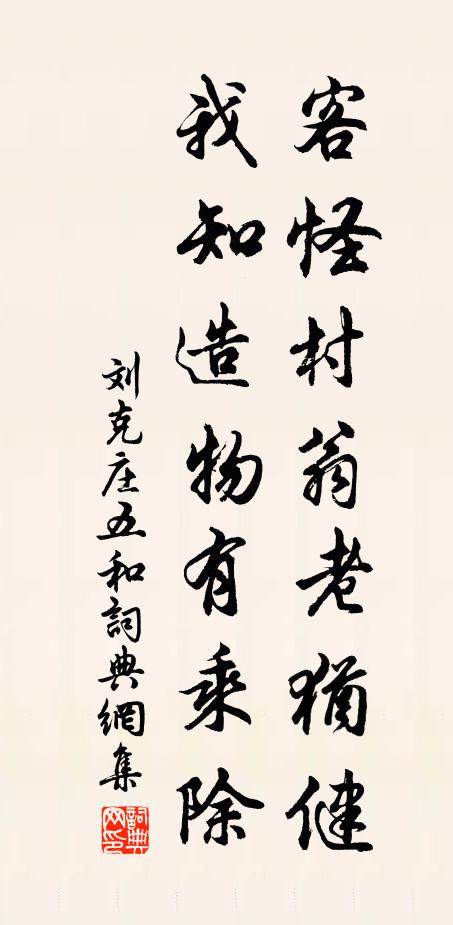 客怪村翁老猶健
我知造物有乘除
刘克庄五和詞典網集
詞典网印